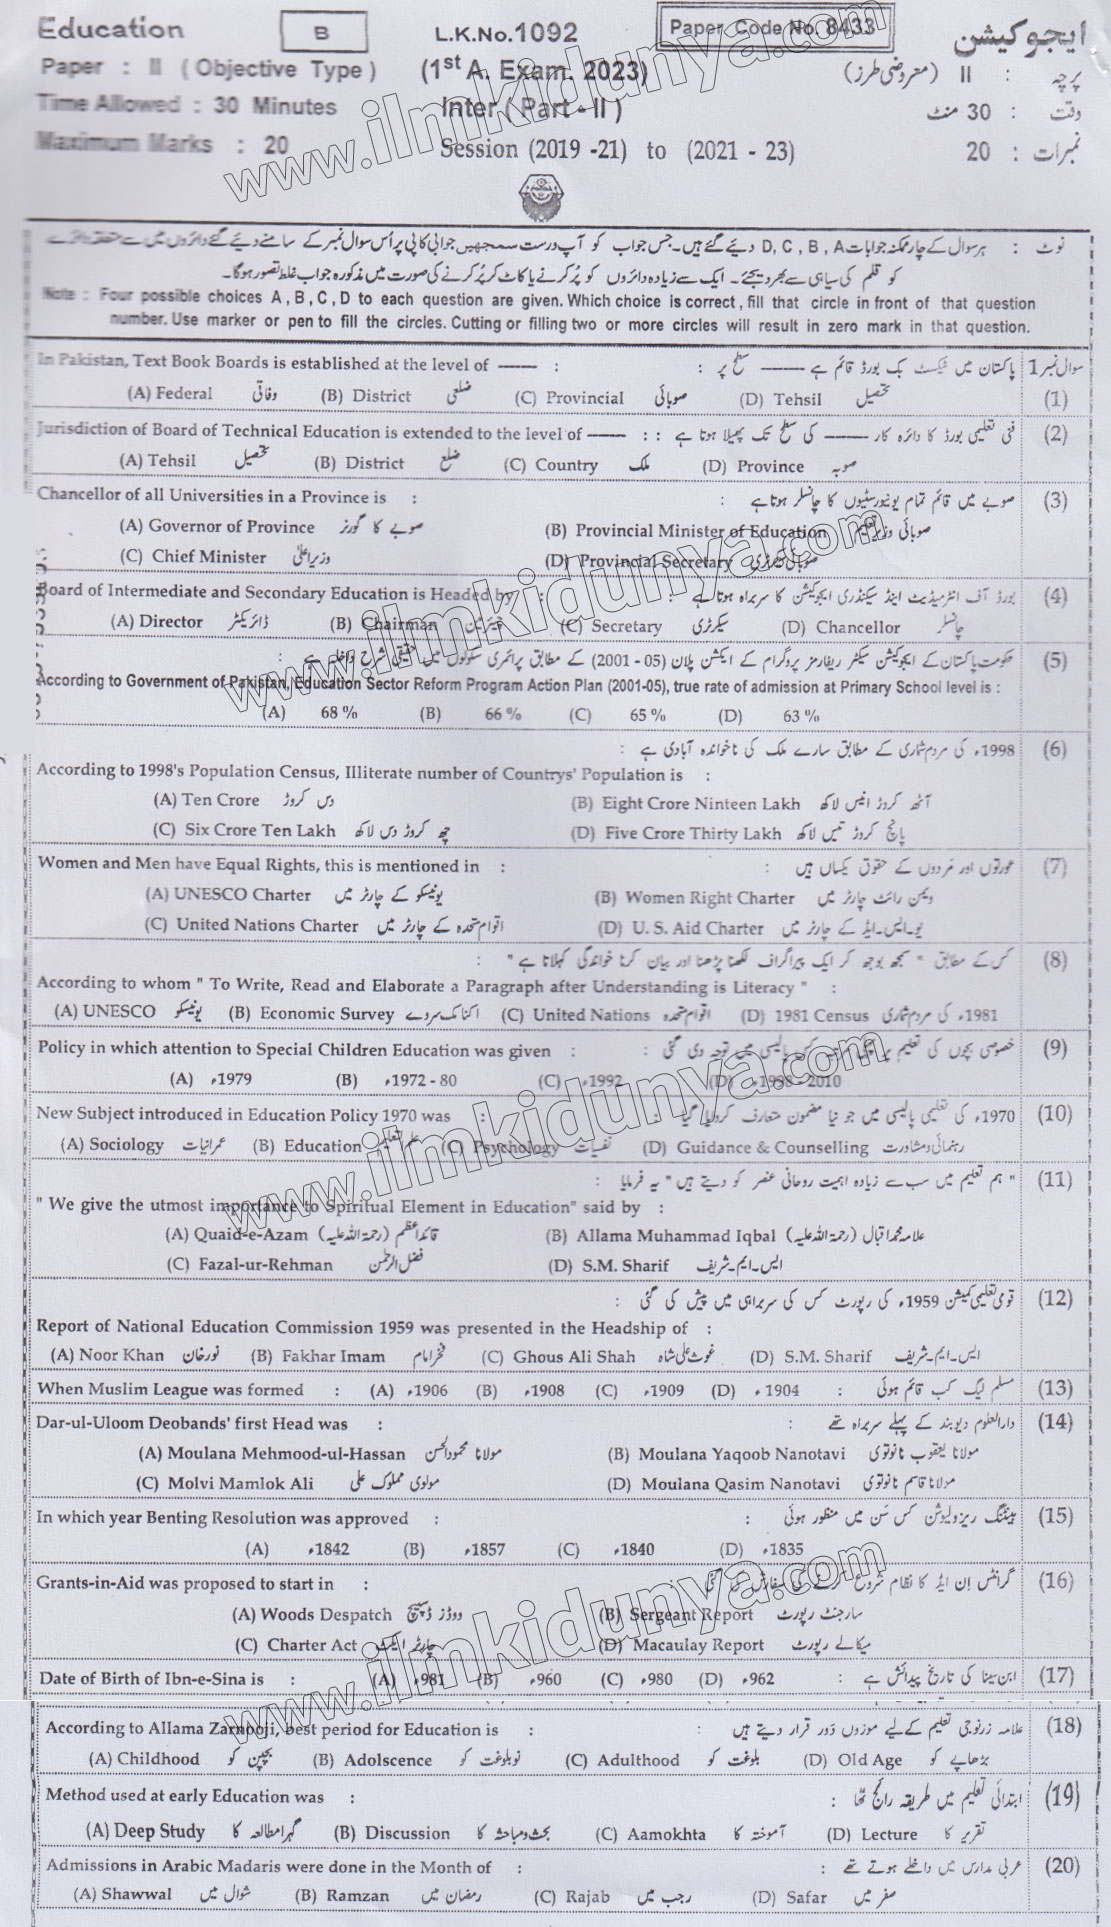 Education B L.K.No.1092 Paper Code No. 8433 ایجوکیشن
Paper : II ( Objective Type ) (1st A. Exam. 2023) پرچہ : II (معروضی طرز)
Time Allowed : 30 Minutes Inter ( Part - II ) وقت : 30 منٹ
Maximum Marks : 20 Session (2019 -21) to (2021 - 23) نمبرات : 20
نوٹ : ہر سوال کے چار ممکنہ جوابات D, C, B, A دیئے گئے ہیں۔ جس جواب کو آپ درست سمجھیں جوابی کاپی پر اُس سوال نمبر کے سامنے دیئے گئے دائروں میں سے متعلقہ دائرے
کو قلم کی سیاہی سے بھر دیجئے۔ ایک سے زیادہ دائروں کو پُر کرنے یا کاٹ کر پُر کرنے کی صورت میں مذکورہ جواب غلط تصور ہوگا۔
Note : Four possible choices A , B , C , D to each question are given. Which choice is correct , fill that circle in front of that question
number. Use marker or pen to fill the circles. Cutting or filling two or more circles will result in zero mark in that question.
In Pakistan, Text Book Boards is established at the level of ------ : پاکستان میں ٹیکسٹ بک بورڈ قائم ہے ------ سطح پر : سوال نمبر 1
(A) Federal وفاقی (B) District ضلعی (C) Provincial صوبائی (D) Tehsil تحصیل (1)
Jurisdiction of Board of Technical Education is extended to the level of ------ : فنی تعلیمی بورڈ کا دائرہ کار ------ کی سطح تک پھیلا ہوتا ہے : (2)
(A) Tehsil تحصیل (B) District ضلع (C) Country ملک (D) Province صوبہ
Chancellor of all Universities in a Province is : صوبے میں قائم تمام یونیورسٹیوں کا چانسلر ہوتا ہے : (3)
(A) Governor of Province صوبے کا گورنر (B) Provincial Minister of Education صوبائی وزیر تعلیم
(C) Chief Minister وزیراعلیٰ (D) Provincial Secretary صوبائی سیکرٹری
Board of Intermediate and Secondary Education is Headed by : بورڈ آف انٹرمیڈیٹ اینڈ سیکنڈری ایجوکیشن کا سربراہ ہوتا ہے : (4)
(A) Director ڈائریکٹر (B) Chairman چیئرمین (C) Secretary سیکرٹری (D) Chancellor چانسلر
حکومت پاکستان کے ایجوکیشن سیکٹر ریفارمز پروگرام کے ایکشن پلان (05 - 2001) کے مطابق پرائمری سکولوں میں حقیقی شرح داخلہ ہے : (5)
According to Government of Pakistan, Education Sector Reform Program Action Plan (2001-05), true rate of admission at Primary School level is :
(A) 68 % (B) 66 % (C) 65 % (D) 63 %
1998ء کی مردم شماری کے مطابق سارے ملک کی ناخواندہ آبادی ہے : (6)
According to 1998's Population Census, Illiterate number of Countrys' Population is :
(A) Ten Crore دس کروڑ (B) Eight Crore Ninteen Lakh آٹھ کروڑ انیس لاکھ
(C) Six Crore Ten Lakh چھ کروڑ دس لاکھ (D) Five Crore Thirty Lakh پانچ کروڑ تیس لاکھ
Women and Men have Equal Rights, this is mentioned in : عورتوں اور مردوں کے حقوق یکساں ہیں : (7)
(A) UNESCO Charter یونیسکو کے چارٹر میں (B) Women Right Charter ویمن رائٹ چارٹر میں
(C) United Nations Charter اقوام متحدہ کے چارٹر میں (D) U. S. Aid Charter یو۔ایس۔ایڈ کے چارٹر میں
کس کے مطابق " سمجھ بوجھ کر ایک پیراگراف لکھنا پڑھنا اور بیان کرنا خواندگی کہلاتا ہے " : (8)
According to whom " To Write, Read and Elaborate a Paragraph after Understanding is Literacy " :
(A) UNESCO یونیسکو (B) Economic Survey اکنامک سروے (C) United Nations اقوام متحدہ (D) 1981 Census 1981ء کی مردم شماری
Policy in which attention to Special Children Education was given : خصوصی بچوں کی تعلیم پر کس پالیسی میں توجہ دی گئی : (9)
(A) 1979ء (B) 1972 - 80ء (C) 1992ء (D) 1998 - 2010ء
New Subject introduced in Education Policy 1970 was : 1970ء کی تعلیمی پالیسی میں جو نیا مضمون متعارف کروایا گیا : (10)
(A) Sociology عمرانیات (B) Education علم التعلیم (C) Psychology نفسیات (D) Guidance & Counselling رہنمائی و مشاورت
" ہم تعلیم میں سب سے زیادہ اہمیت روحانی عنصر کو دیتے ہیں " یہ فرمایا : (11)
" We give the utmost importance to Spiritual Element in Education" said by :
(A) Quaid-e-Azam قائداعظم (رحمۃ اللہ علیہ) (B) Allama Muhammad Iqbal علامہ محمد اقبال (رحمۃ اللہ علیہ)
(C) Fazal-ur-Rehman فضل الرحمٰن (D) S.M. Sharif ایس۔ایم۔شریف
قومی تعلیمی کمیشن 1959ء کی رپورٹ کس کی سربراہی میں پیش کی گئی : (12)
Report of National Education Commission 1959 was presented in the Headship of :
(A) Noor Khan نور خان (B) Fakhar Imam فخر امام (C) Ghous Ali Shah غوث علی شاہ (D) S.M. Sharif ایس۔ایم۔شریف
When Muslim League was formed : (A) 1906ء (B) 1908ء (C) 1909ء (D) 1904ء : مسلم لیگ کب قائم ہوئی (13)
Dar-ul-Uloom Deobands' first Head was : دارالعلوم دیوبند کے پہلے سربراہ تھے : (14)
(A) Moulana Mehmood-ul-Hassan مولانا محمود الحسن (B) Moulana Yaqoob Nanotavi مولانا یعقوب نانوتوی
(C) Molvi Mamlok Ali مولوی مملوک علی (D) Moulana Qasim Nanotavi مولانا قاسم نانوتوی
In which year Benting Resolution was approved : بینٹنگ ریزولیوشن کس سَن میں منظور ہوئی : (15)
(A) 1842ء (B) 1857ء (C) 1840ء (D) 1835ء
Grants-in-Aid was proposed to start in : گرانٹس اِن ایڈ کا نظام شروع کرنے کی سفارش کی گئی : (16)
(A) Woods Despatch ووڈز ڈسپیچ (B) Sergeant Report سارجنٹ رپورٹ
(C) Charter Act چارٹر ایکٹ (D) Macaulay Report میکالے رپورٹ
Date of Birth of Ibn-e-Sina is : (A) 981ء (B) 960ء (C) 980ء (D) 962ء : ابن سینا کی تاریخ پیدائش ہے (17)
According to Allama Zarnooji, best period for Education is : علامہ زرنوجی تعلیم کے لیے موزوں دَور قرار دیتے ہیں : (18)
(A) Childhood بچپن کو (B) Adolscence نوبلوغت کو (C) Adulthood بلوغت کو (D) Old Age بڑھاپے کو
Method used at early Education was : ابتدائی تعلیم میں طریقہ رائج تھا : (19)
(A) Deep Study گہرا مطالعہ کا (B) Discussion بحث و مباحثہ کا (C) Aamokhta آموختہ کا (D) Lecture تقریر کا
Admissions in Arabic Madaris were done in the Month of : عربی مدارس میں داخلے ہوتے تھے : (20)
(A) Shawwal شوال میں (B) Ramzan رمضان میں (C) Rajab رجب میں (D) Safar صفر میں
www.ilmkidunya.com
www.ilmkidunya.com
www.ilmkidunya.com
www.ilmkidunya.com